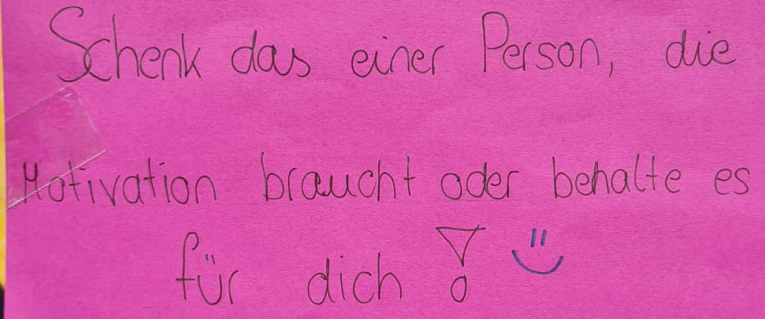 Schenk das einer Person, die
Motivation braucht oder behalte es
für dich !